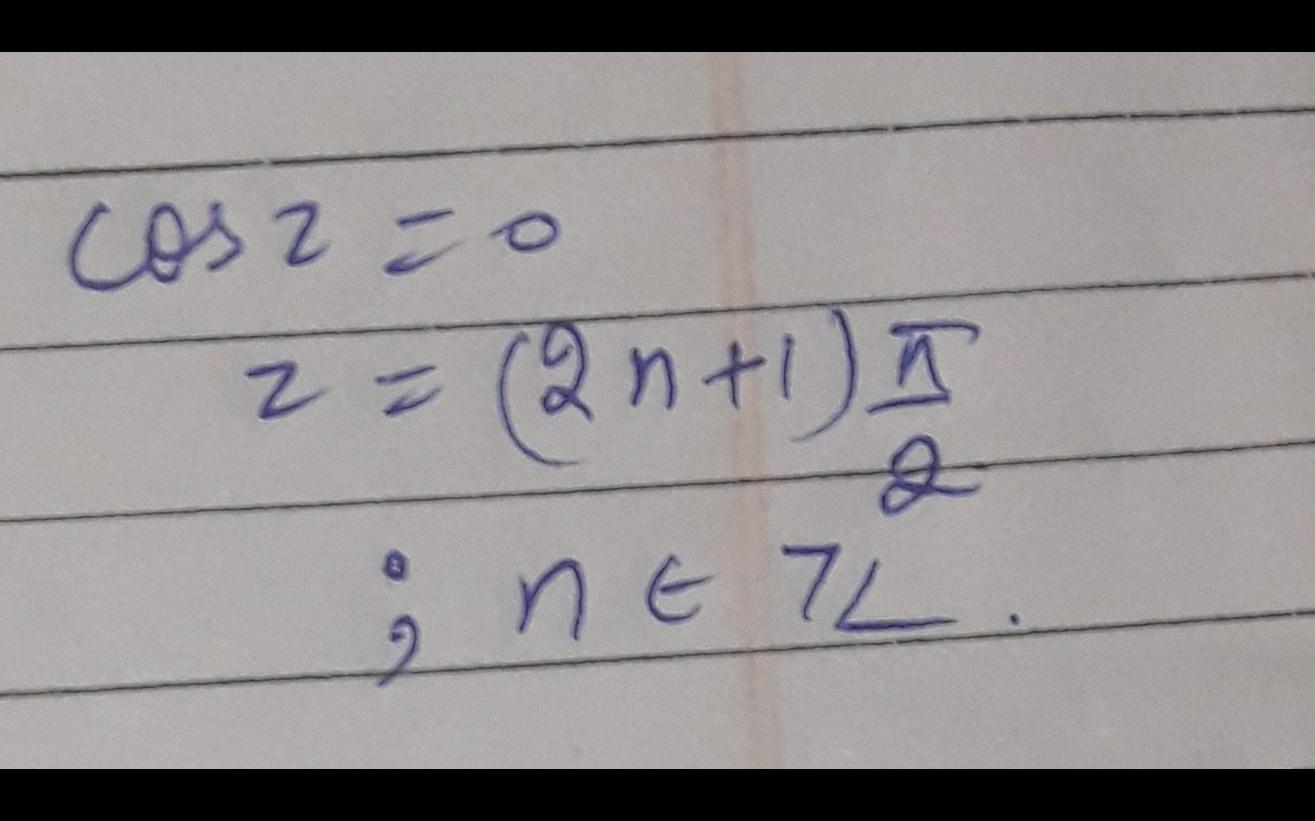 cos z = 0
z = (2n+1) π/2
; n ∈ ℤ.